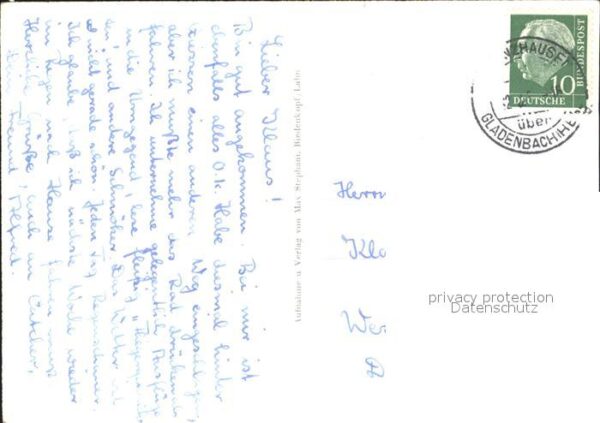 Lieber Klaus!
Bin gut angekommen. Bei mir ist
ebenfalls alles O.k. Habe diesmal hinter
einen anderen Weg eingeschlagen,
aber ich mußte mehr das Rad drücken als
fahren. Ich unternehme gelegentlich Ausflüge
in die Umgegend, lese fleißig
und andere Schmöker. Das Wetter ist
nicht gerade schön. Jeden Tag Regenschauer.
Ich glaube, daß ich nächste Woche wieder
im Regen nach Hause fahren muß.
Herzliche Grüße, auch an
Dein Freund Alfred.
Aufnahme u. Verlag von Max Stephani, Biedenkopf/Lahn
DEUTSCHE
BUNDESPOST
10
über
GLADENBACH
Herrn
Kla
We
privacy protection
Datenschutz